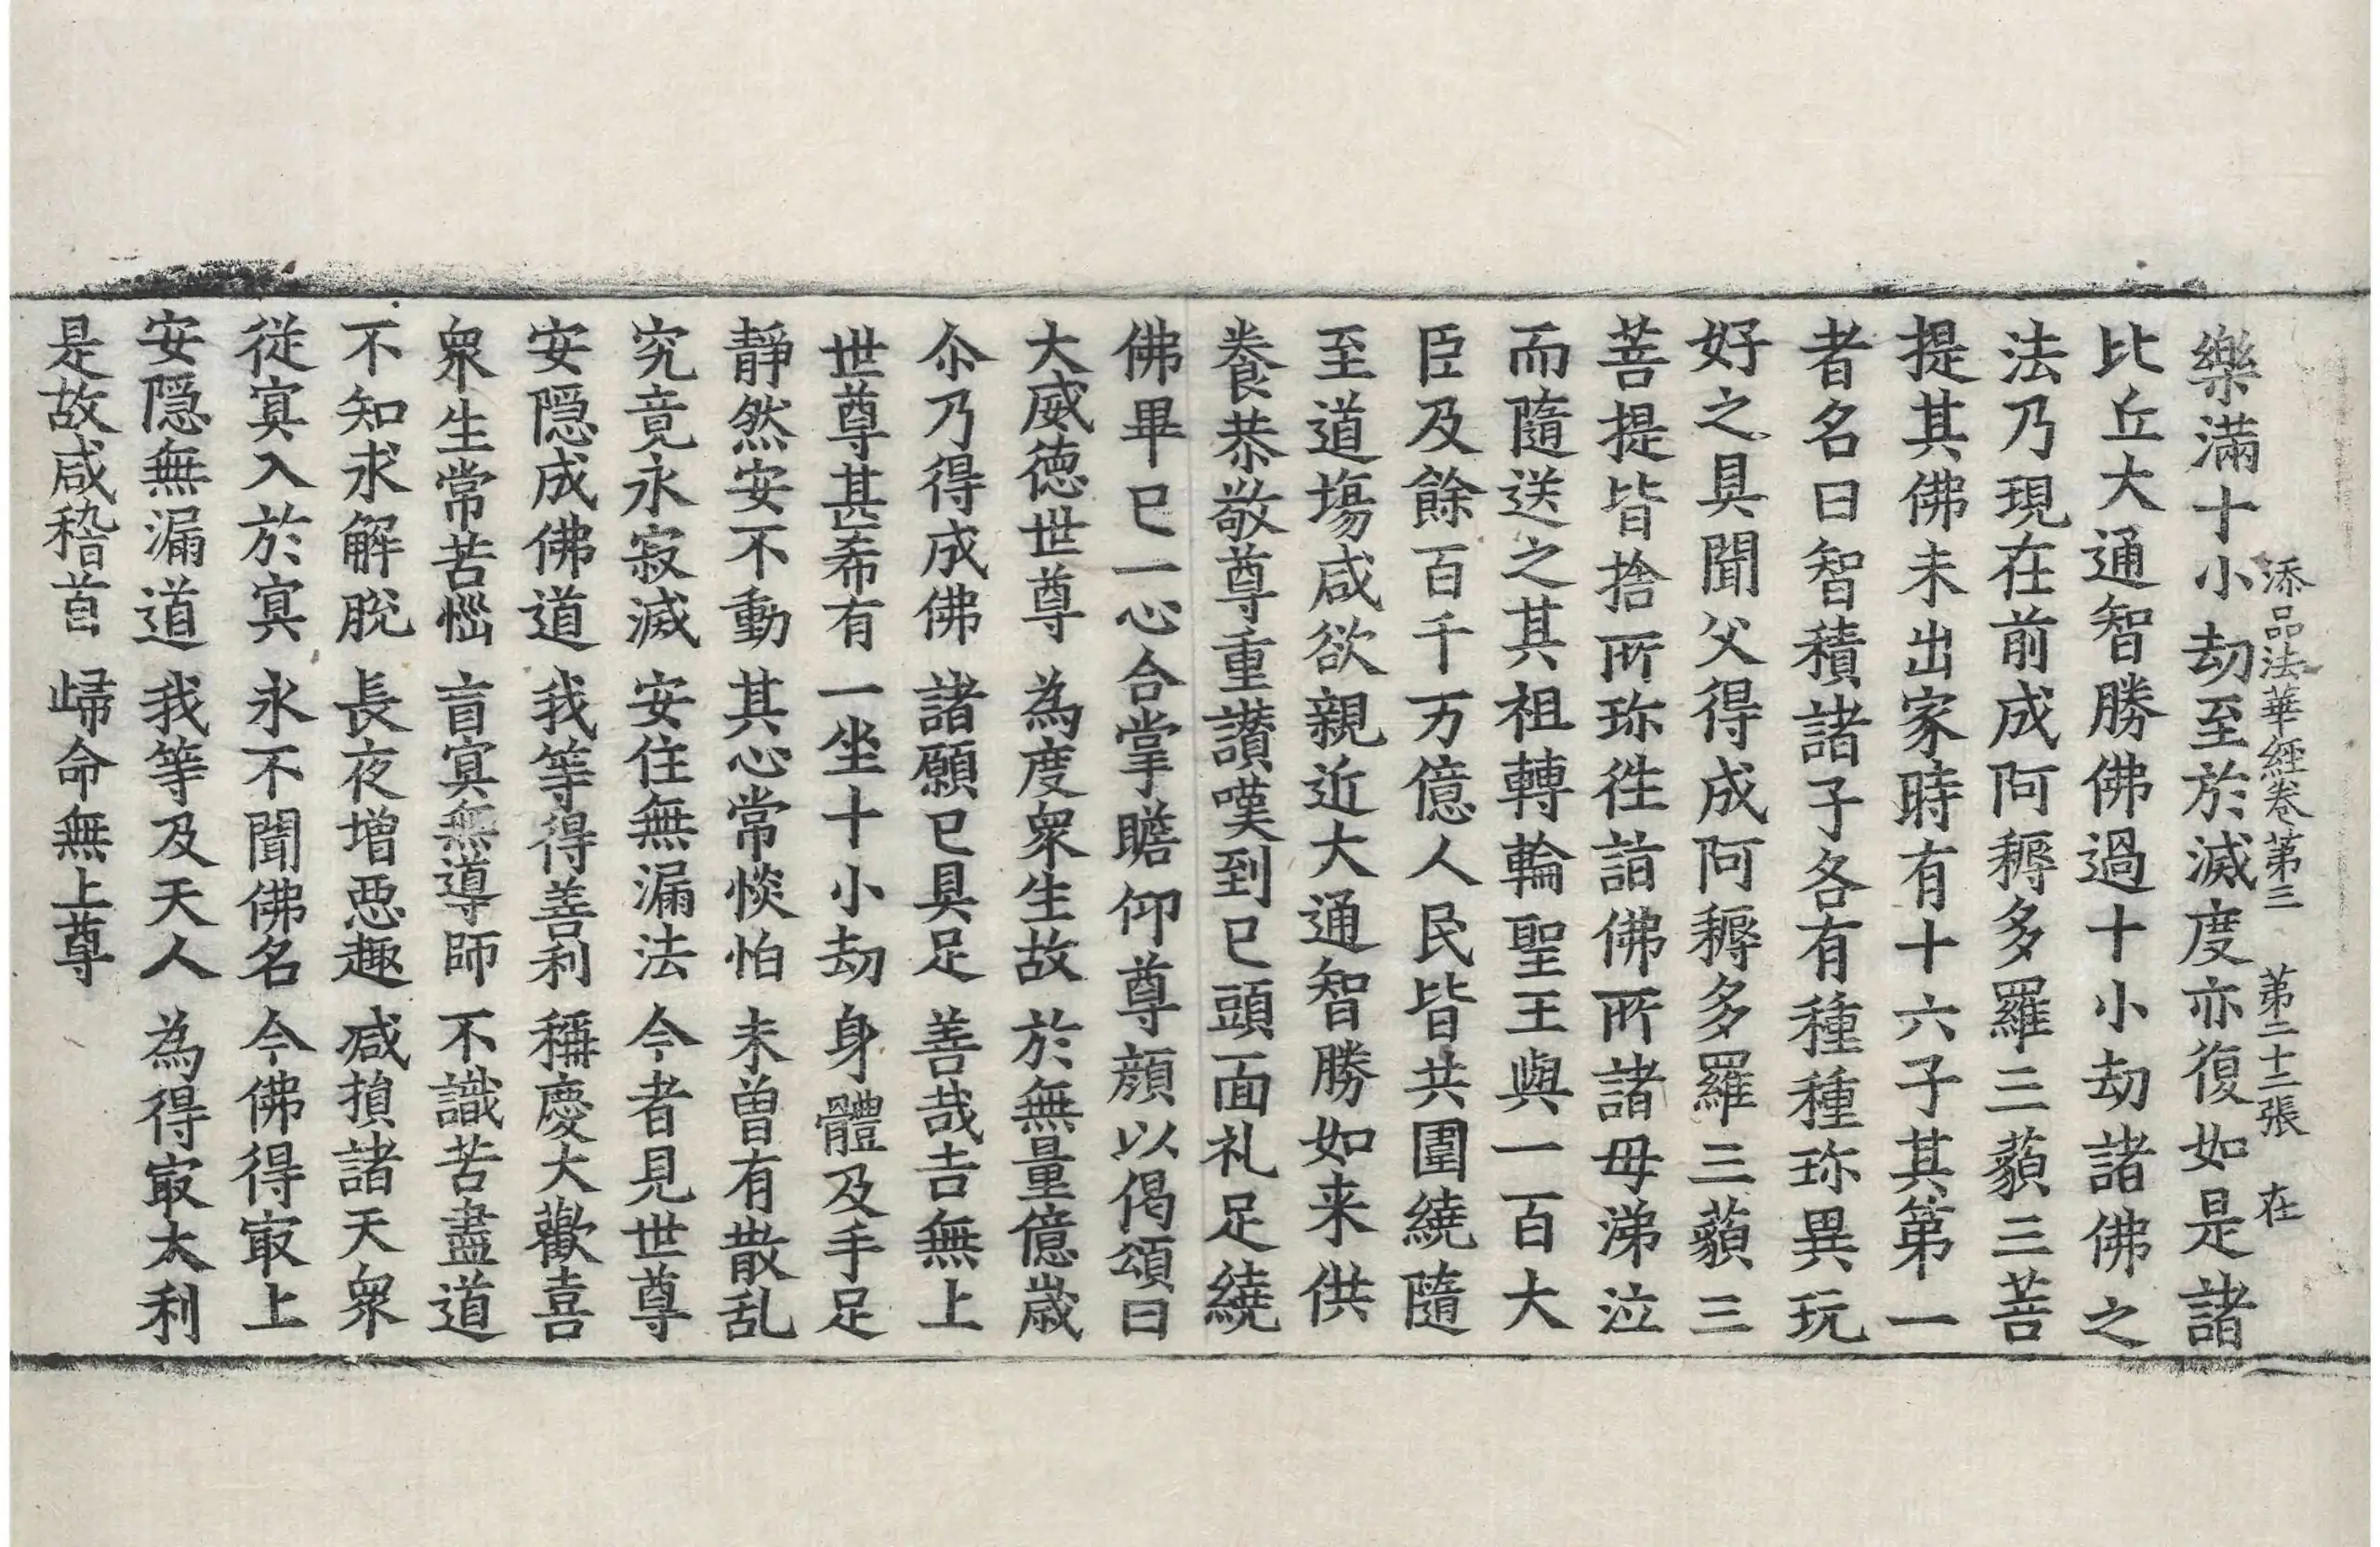 添品法華經卷第三　第二十二張　在
樂滿十小劫至於滅度亦復如是諸
比丘大通智勝佛過十小劫諸佛之
法乃現在前成阿耨多羅三藐三菩
提其佛未出家時有十六子其第一
者名曰智積諸子各有種種珎異玩
好之具聞父得成阿耨多羅三藐三
菩提皆捨所珎徃詣佛所諸母涕泣
而隨送之其祖轉輪聖王與一百大
臣及餘百千万億人民皆共圍繞隨
至道塲咸欲親近大通智勝如来供
養恭敬尊重讃嘆到已頭面礼足繞
佛畢已一心合掌瞻仰尊顔以偈頌曰
大威徳世尊　為度衆生故　於無量億歲
尒乃得成佛　諸願已具足　善哉吉無上
世尊甚希有　一坐十小劫　身體及手足
靜然安不動　其心常惔怕　未曽有散乱
究竟永寂滅　安住無漏法　今者見世尊
安隠成佛道　我等得善利　稱慶大歡喜
衆生常苦惱　盲冥無導師　不識苦盡道
不知求解脫　長夜增惡趣　减損諸天衆
從冥入於冥　永不聞佛名　今佛得冣上
安隠無漏道　我等及天人　為得冣大利
是故咸稽首　歸命無上尊